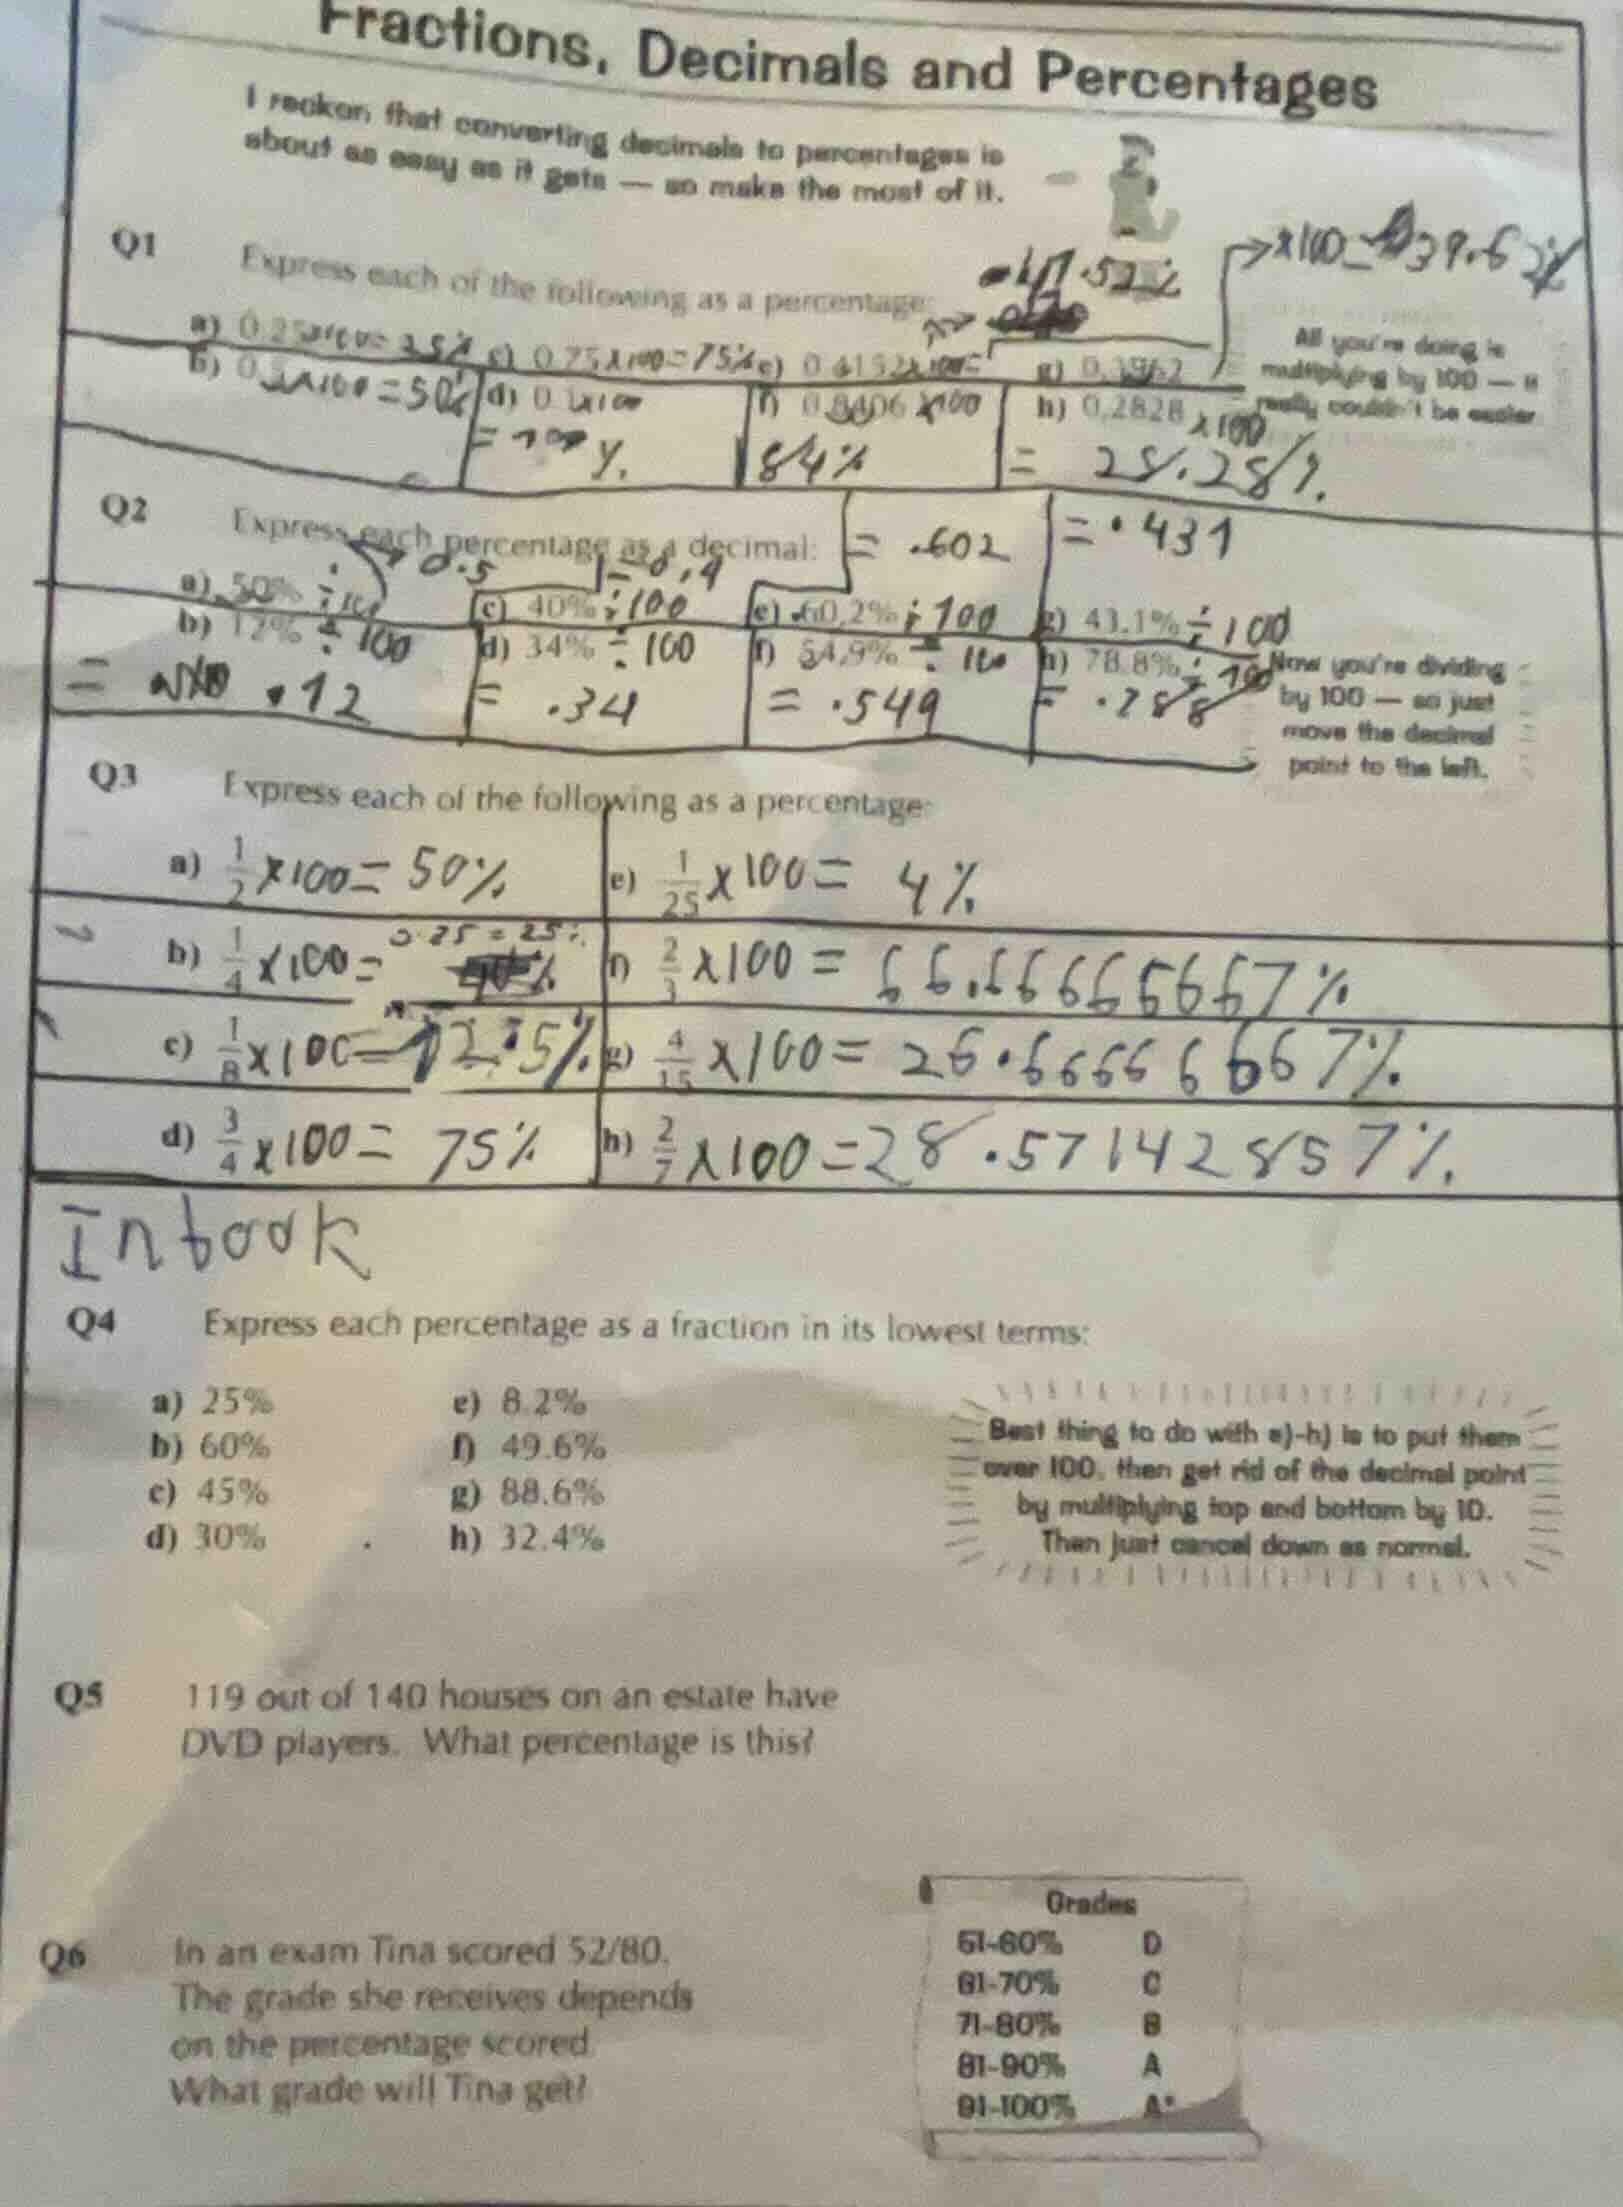 Fractions, Decimals and Percentages
I reckon that converting decimals to percentages is
about as easy as it gets — so make the most of it.
×100= 39.62%
Q1 Express each of the following as a percentage:
.52%
a) 0.25×100= 25% c) 0.75×100=75% e) 0.4152×100= g) 0.3962
b) ×100=50% d) ×100 f) 0.8406 ×100 h) 0.2828 ×100
= %. 84% = 28.28%.
All you're doing is
multiplying by 100 — it
really couldn't be easier
Q2 Express each percentage as a decimal: = .602 = .431
0.5
a) 50% ÷100 c) 40% ÷100 e) 60.2% ÷100 g) 43.1% ÷100
b) 12% ÷100 d) 34% ÷100 f) 54.9% ÷100 h) 78.8% ÷100
= .12 = .34 = .549 = .788
Now you're dividing
by 100 — so just
move the decimal
point to the left.
Q3 Express each of the following as a percentage:
a) 1/2 ×100= 50% e) 1/25 ×100= 4%
0.25 = 25%
b) 1/4 ×100= f) 2/3 ×100 = 66.66666667%
c) 1/8 ×100=12.5% g) 4/15 ×100= 26.66666667%
d) 3/4 ×100= 75% h) 2/7 ×100=28.571428857%
In book
Q4 Express each percentage as a fraction in its lowest terms:
a) 25% e) 8.2%
b) 60% f) 49.6%
c) 45% g) 88.6%
d) 30% h) 32.4%
Best thing to do with e)-h) is to put them
over 100, then get rid of the decimal point
by multiplying top and bottom by 10.
Then just cancel down as normal.
Q5 119 out of 140 houses on an estate have
DVD players. What percentage is this?
Q6 In an exam Tina scored 52/80.
The grade she receives depends
on the percentage scored.
What grade will Tina get?
Grades
51-60% D
61-70% C
71-80% B
81-90% A
91-100% A*